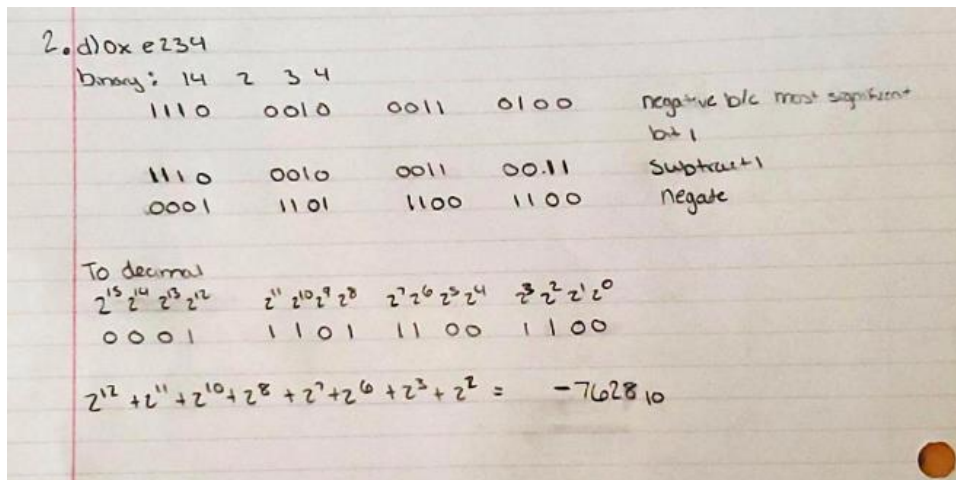 2. d) 0x e234
binary: 14 2 3 4
1110 0010 0011 0100 negative b/c most significant
bit 1
1110 0010 0011 0011 subtract 1
0001 1101 1100 1100 negate
To decimal
2¹⁵ 2¹⁴ 2¹³ 2¹² 2¹¹ 2¹⁰ 2⁹ 2⁸ 2⁷ 2⁶ 2⁵ 2⁴ 2³ 2² 2¹ 2⁰
0001 1101 1100 1100
2¹² + 2¹¹ + 2¹⁰ + 2⁸ + 2⁷ + 2⁶ + 2³ + 2² = -7628₁₀